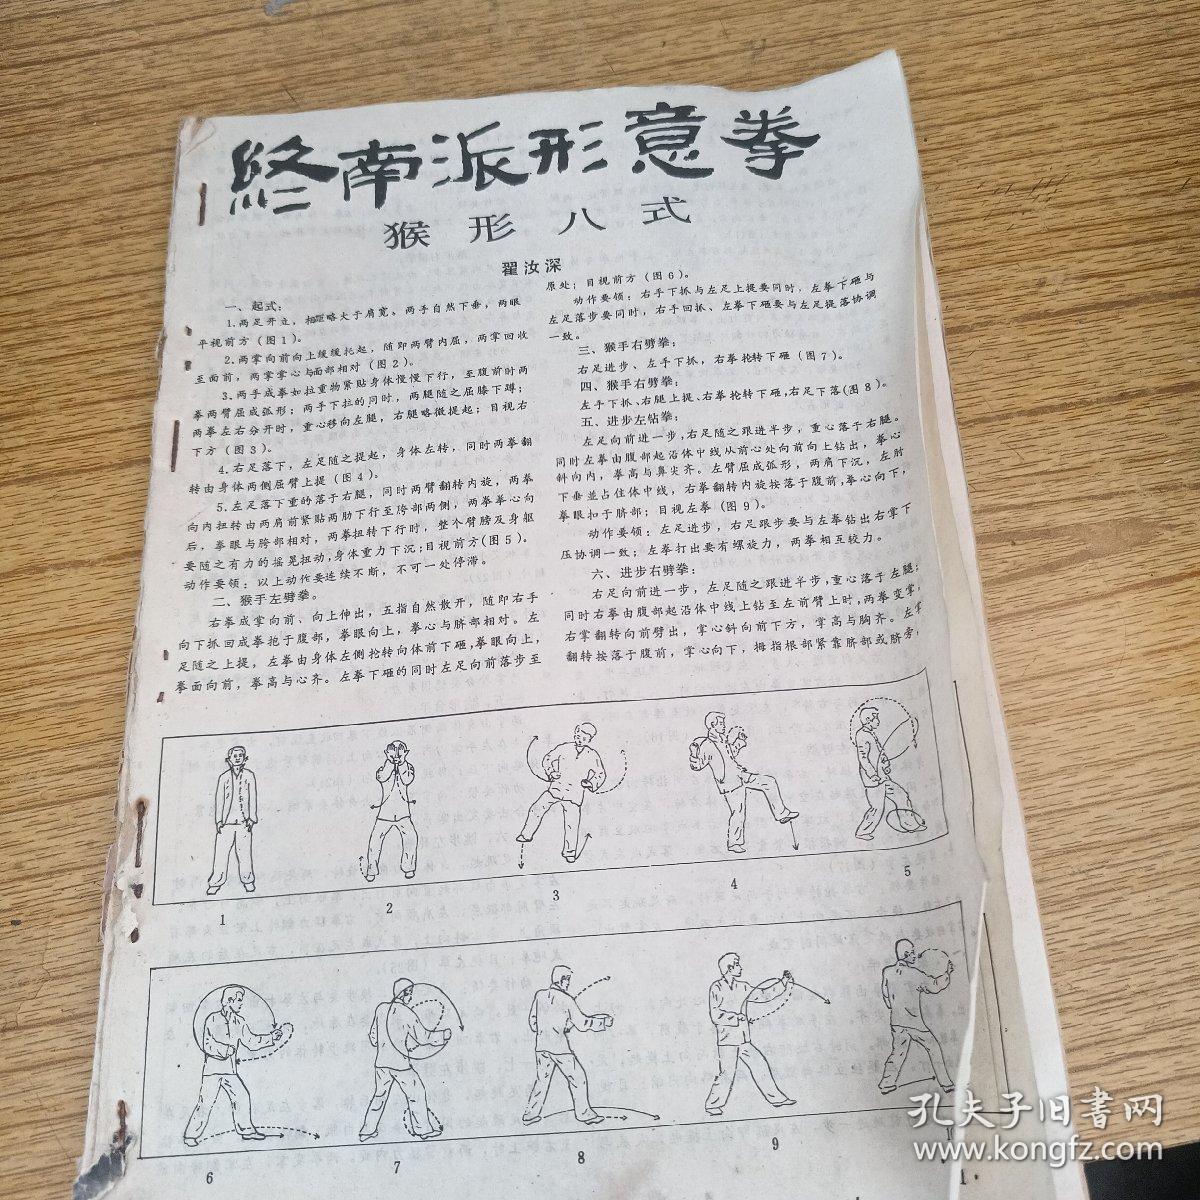 終南派形意拳
猴形八式
翟汝深
一、起式:
1.两足开立,相距略大于肩宽、两手自然下垂,两眼
平视前方(图1)。
2.两掌向前向上缓缓托起,随即两臂内屈,两掌回收
至面前,两掌掌心与面部相对(图2)。
3.两手成拳如拉重物紧贴身体慢慢下行,至腹前时两
拳两臂屈成弧形;两手下拉的同时,两腿随之屈膝下蹲;
两拳左右分开时,重心移向左腿,右腿略微提起;目视右
下方(图3)。
4.右足落下,左足随之提起,身体左转,同时两拳翻
转由身体两侧屈臂上提(图4)。
5.左足落下重的落于右腿,同时两臂翻转内旋,两拳
向内扭转由两肩前紧贴两肋下行至胯部两侧,两拳拳心向
后,拳眼与胯部相对,两拳扭转下行时,整个臂膀及身躯
要随之有力的摇晃扭动,身体重力下沉;目视前方(图5)。
动作要领:以上动作要连续不断,不可一处停滞。
二、猴手左劈拳。
右拳成掌向前、向上伸出,五指自然散开,随即右手
向下抓回成拳抱于腹部,拳眼向上,拳心与脐部相对。左
足随之上提,左拳由身体左侧抡转向体前下砸,拳眼向上,
拳面向前,拳高与心齐。左拳下砸的同时左足向前落步至
原处;目视前方(图6)。
动作要领:右手下抓与左足上提要同时,左拳下砸与
左足落步要同时,右手回抓、左拳下砸要与左足提落协调
一致。
三、猴手右劈拳:
右足进步、左手下抓,右拳抡转下砸(图7)。
四、猴手右劈拳:
左手下抓、右腿上提、右拳抡转下砸,右足下落(图8)。
五、进步左钻拳:
左足向前进一步,右足随之跟进半步,重心落于右腿。
同时左拳由腹部起沿体中线从前心处向前向上钻出,拳心
斜向内,拳高与鼻尖齐。左臂屈成弧形,两肩下沉,左肘
下垂並占住体中线,右拳翻转内旋按落于腹前,拳心向下,
拳眼扣于脐部;目视左拳(图9)。
动作要领:左足进步,右足跟步要与左拳钻出右掌下
压协调一致;左拳打出要有螺旋力,两拳相互较力。
六、进步右劈拳:
右足向前进一步,左足随之跟进半步,重心落于左腿;
同时右拳由腹部起沿体中线上钻至左前臂上时,两拳变掌,
右掌翻转向前劈出,掌心斜向前下方,掌高与胸齐。左掌
翻转按落于腹前,掌心向下,拇指根部紧靠脐部或脐旁,
1
2
3
4
5
6
7
8
9
孔夫子旧書网
www.kongfz.com